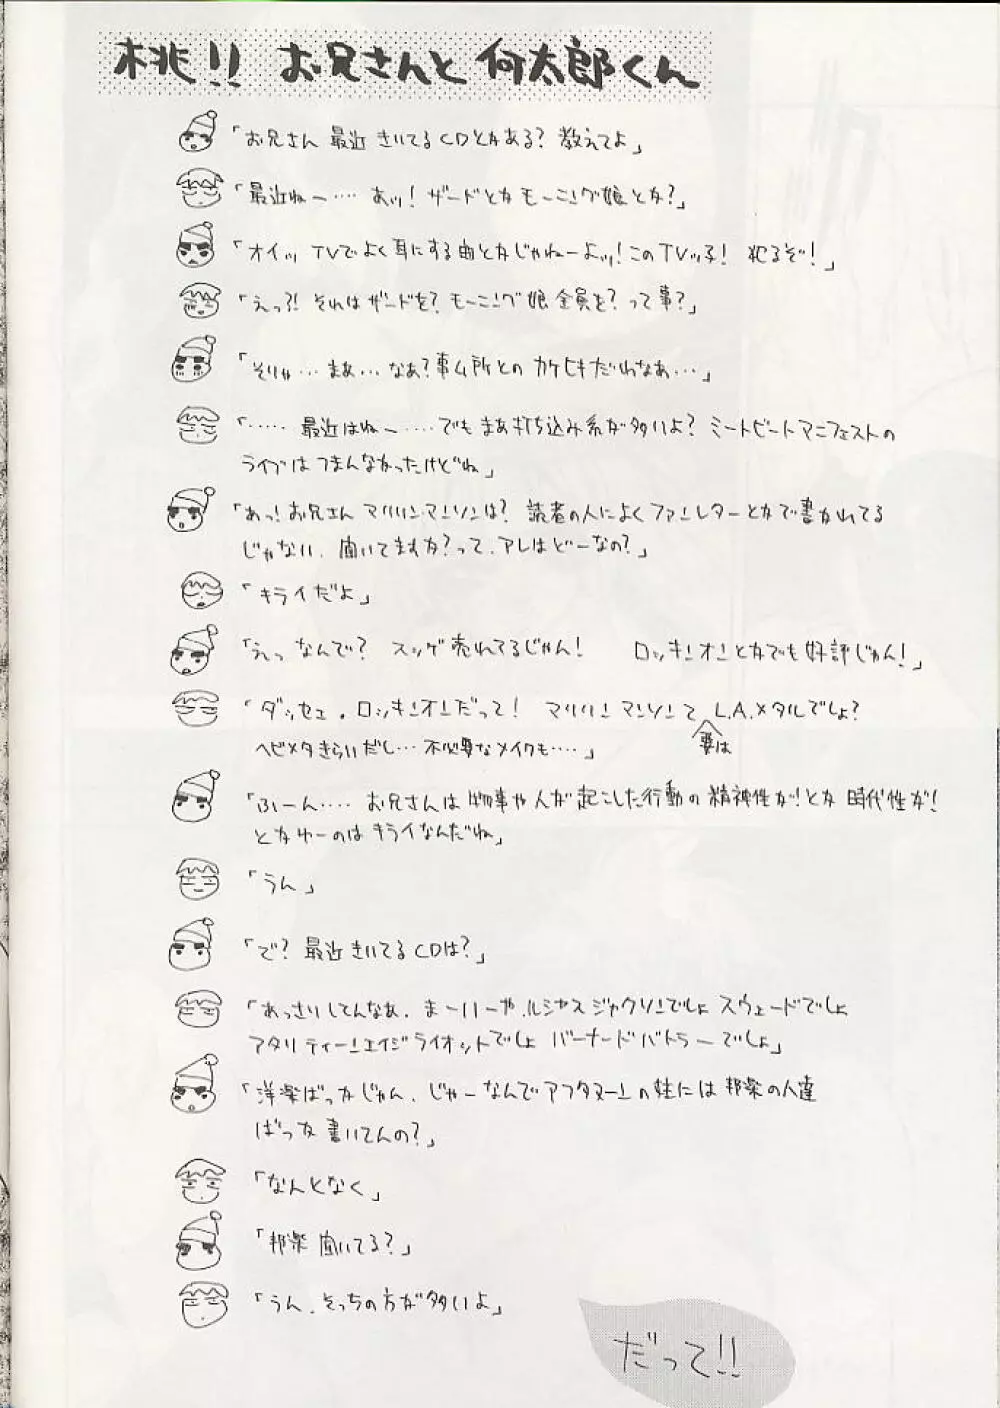 桃!! お兄さんと何太郎くん
「お兄さん 最近 きいてるCDとかある? 教えてよ」
「最近ねー…… あッ! ザードとかモーニング娘とか?」
「オイッ TVでよく耳にする曲とかじゃねーよッ! このTVッ子! 犯るぞ!」
「えっ?! それはザードを? モーニング娘全員を? って事?」
「そりゃ… まあ… なあ? 事ム所との カケヒキだわなぁ…」
「…… 最近はねー …… でも まあ打ち込み系が多いよ? ミートビートマニフェストの
ライブは つまんなかったけどね」
「あっ! お兄さん マリリンマンソンは? 読者の人によくファンレターとかで書かれてる
じゃない、聞いてますか? って、アレはどーなの?」
「キライだよ」
「えっ なんで? スッゲ売れてるじゃん! ロッキンオンとかでも好評じゃん!」
「ダッセェ。ロッキンオンだって! マリリンマンソンて 要は L.A.メタルでしょ?
ヘビメタきらいだし… 不必要なメイクも……」
「ふーん…… お兄さんは 物事や人が起こした行動の精神性が! とか 時代性が!
とかゆーのは キライなんだね」
「うん」
「で? 最近きいてるCDは?」
「あっさりしてんなぁ、まーいーや、ルシャスジャクソンでしょ スウェードでしょ
アタリティーンエイジライオットでしょ バーナードバトラーでしょ」
「洋楽ばっかじゃん、じゃーなんでアフタヌーンの柱には邦楽の人達
ばっか書いてんの?」
「なんとなく」
「邦楽 聞いてる?」
「うん、そっちの方が多いよ」
だって!!